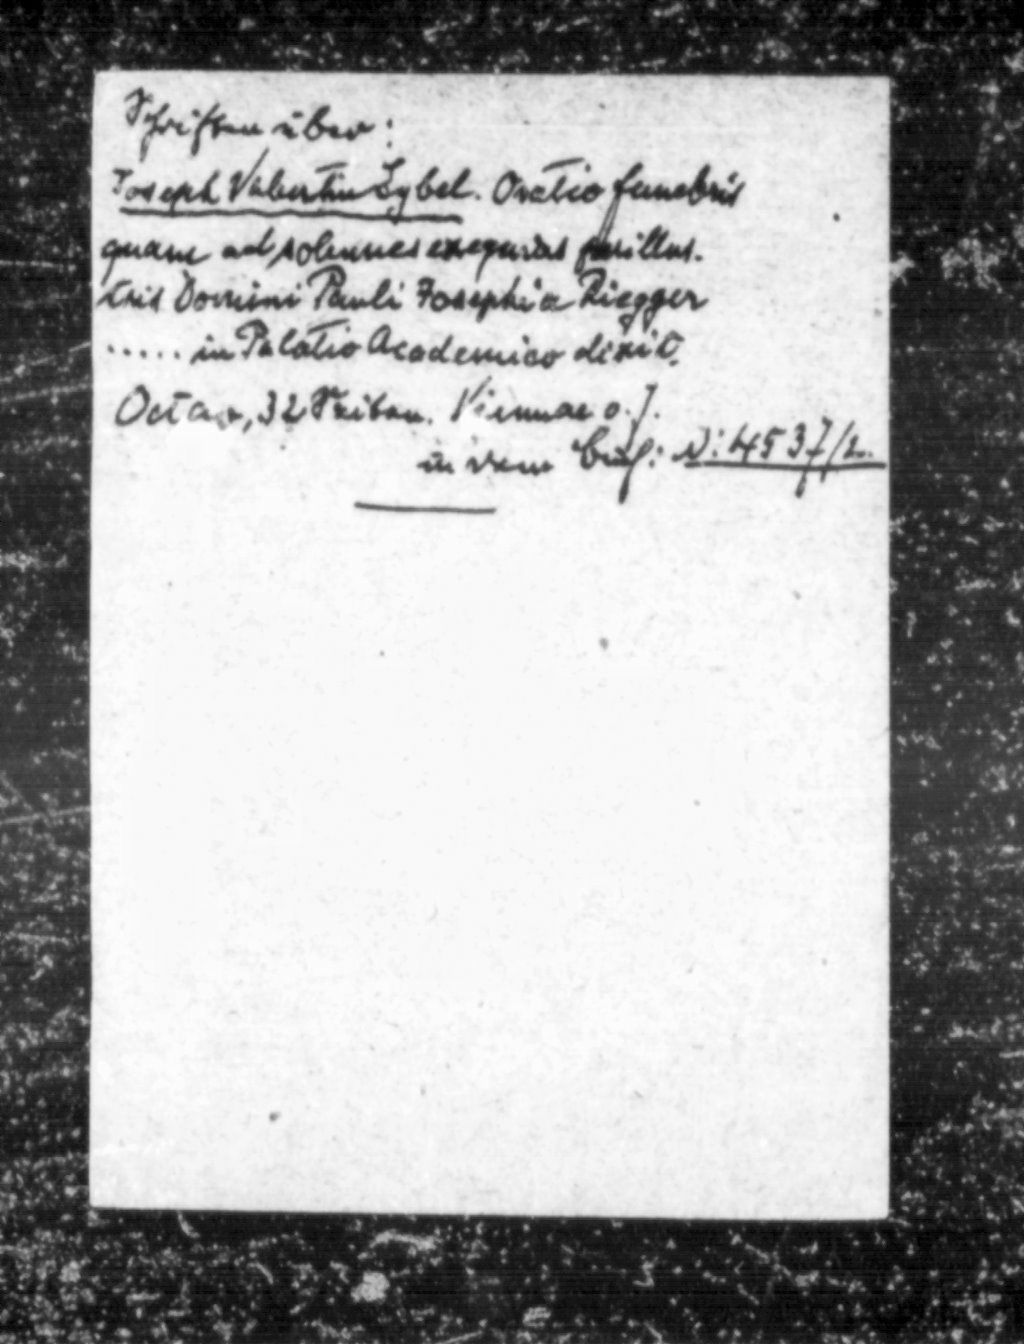 Schriften über:
Joseph Valentin Eybel. Oratio funebris
quam ad solennes exequias perillus-
tris Domini Pauli Josephi a Riegger
..... in Palatio Academico dixit.
Octav, 32 Seiten. Viennae o. J.
in dem Buch: N: 4537/2.